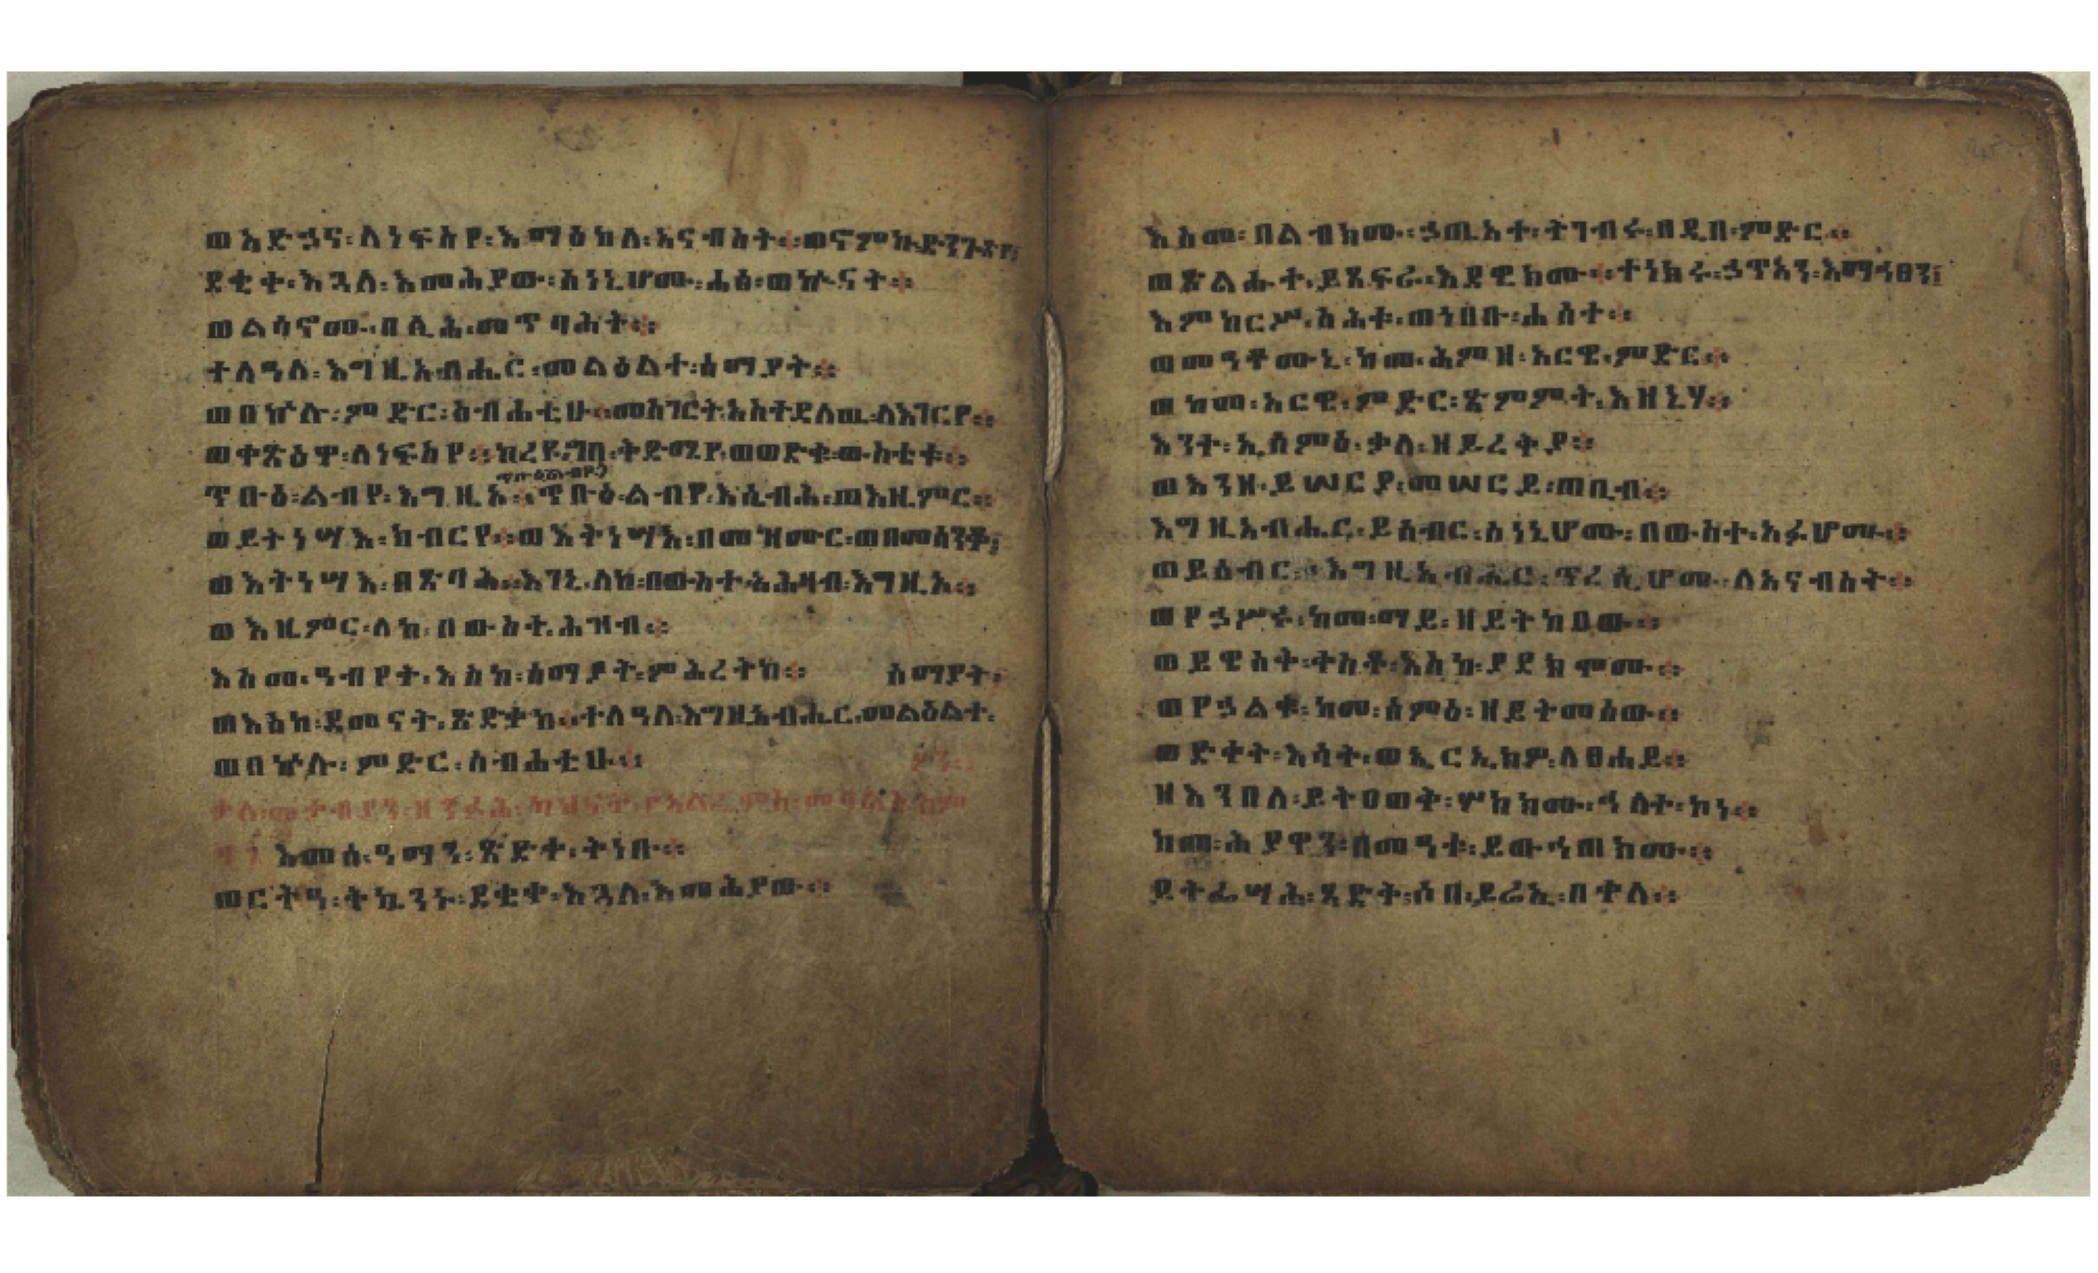 ወአድኃና፡ለነፍስየ፡እማዕከለ፡አናብስት።ወኖምኩ፡ድንጉፅየ፤
ደቂቀ፡እጓለ፡እመሕያው፡ስነኒሆሙ፡ሐፅ፡ወኵናት።
ወልሳኖሙ፡በሊሕ፡መጥባሕት።
ተለዓለ፡እግዚአብሔር፡መልዕልተ፡ሰማያት።
ወበኵሉ፡ምድር፡ስብሐቲሁ።መስገርት፡አስተደለዉ፡ለእገርየ።
ወቀጽዕዋ፡ለነፍስየ።ከረዩ፡ግበ፡ትድሚየ፡ወወድቁ፡ውስቴቱ።
ጥቡዕ፡ልብየ፡እግዚኦ።ጥቡዕ፡ልብየ፡እሴብሕ፡ወእዚምር።
ወይትነሣእ፡ክብርየ።ወእትነሣእ፡በመዝሙር፡ወበመሰንቆ፤
ወእትነሣእ፡በጽባሕ።እገኒ፡ለከ፡በውስተ፡አሕዛብ፡እግዚኦ።
ወእዚምር፡ለከ፡በውስተ፡ሕዝብ።
እስመ፡ዓብየት፡እስከ፡ሰማያት፡ምሕረትከ። ሰማያት፡
ወእስከ፡ደመናት፡ጽድቀከ።ተለዓለ፡እግዚአብሔር፡መልዕልተ፡
ወበኵሉ፡ምድር፡ስብሐቲሁ።
እመሰ፡ዓማን፡ጽድቀ፡ትነቡ።
ወርትዓ፡ትኴንኑ፡ደቂቀ፡እጓለ፡እመሕያው።
እስመ፡በልብክሙ፡ኃጢአተ፡ትገብሩ፡በዲበ፡ምድር።
ወጽልሑተ፡ይጸፍራ፡እደዊክሙ።ተነክሩ፡ኃጥአን፡እማኅፀን፤
እምከርሥ፡ስሕቱ፡ወነበቡ፡ሐሰተ።
ወመዓቶሙኒ፡ከመ፡ሕምዘ፡አርዌ፡ምድር።
ወከመ፡አርዌ፡ምድር፡ጽምምት፡እዘኒሃ።
እንተ፡ኢሰምዕ፡ቃለ፡ዘይረቅያ።
ወእንዘ፡ይሠርያ፡መሠርይ፡ጠቢብ።
እግዚአብሔር፡ይሰብር፡ስነኒሆሙ፡በውስተ፡አፉሆሙ።
ወይሰብር፡እግዚአብሔር፡ጥረሲሆሙ፡ለአናብስት።
ወየኃሥሩ፡ከመ፡ማይ፡ዘይትከዐው።
ወይዌስቅ፡ቀስቶ፡እስከ፡ያደክሞሙ።
ወየኃልቁ፡ከመ፡ሰምዕ፡ዘይትመሰው።
ወድቀት፡እሳት፡ወኢርኢክዎ፡ለፀሐይ።
ዘእንበለ፡ይትዐወቅ፡ሦክክሙ፡ኅስት፡ኮነ።
ከመ፡ሕያዋን፡በመዓቱ፡ይውኅጠክሙ።
ይትፌሣሕ፡ጻድቅ፡ሶበ፡ይሬኢ፡በቀለ።